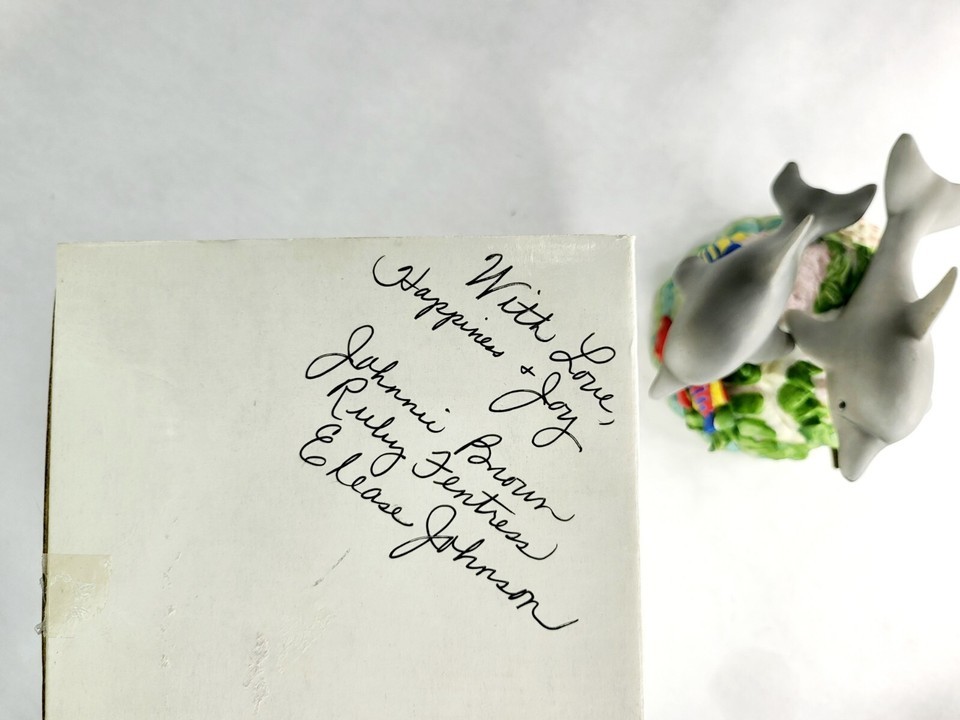 With Love,
Happiness + Joy
Johnnie Brown
Ruby Fentress
Elease Johnson